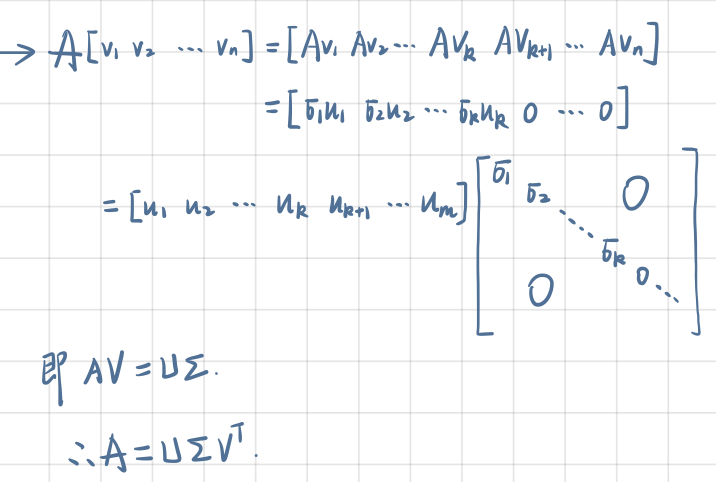 → A[v₁ v₂ ⋯ vₙ] = [Av₁ Av₂ ⋯ Avₖ Avₖ₊₁ ⋯ Avₙ]
= [σ₁u₁ σ₂u₂ ⋯ σₖuₖ 0 ⋯ 0]
= [u₁ u₂ ⋯ uₖ uₖ₊₁ ⋯ uₘ] [σ₁ σ₂ ⋱ σₖ 0 ⋱ 0 0]
即 AV = UΣ.
∴ A = UΣVᵀ.